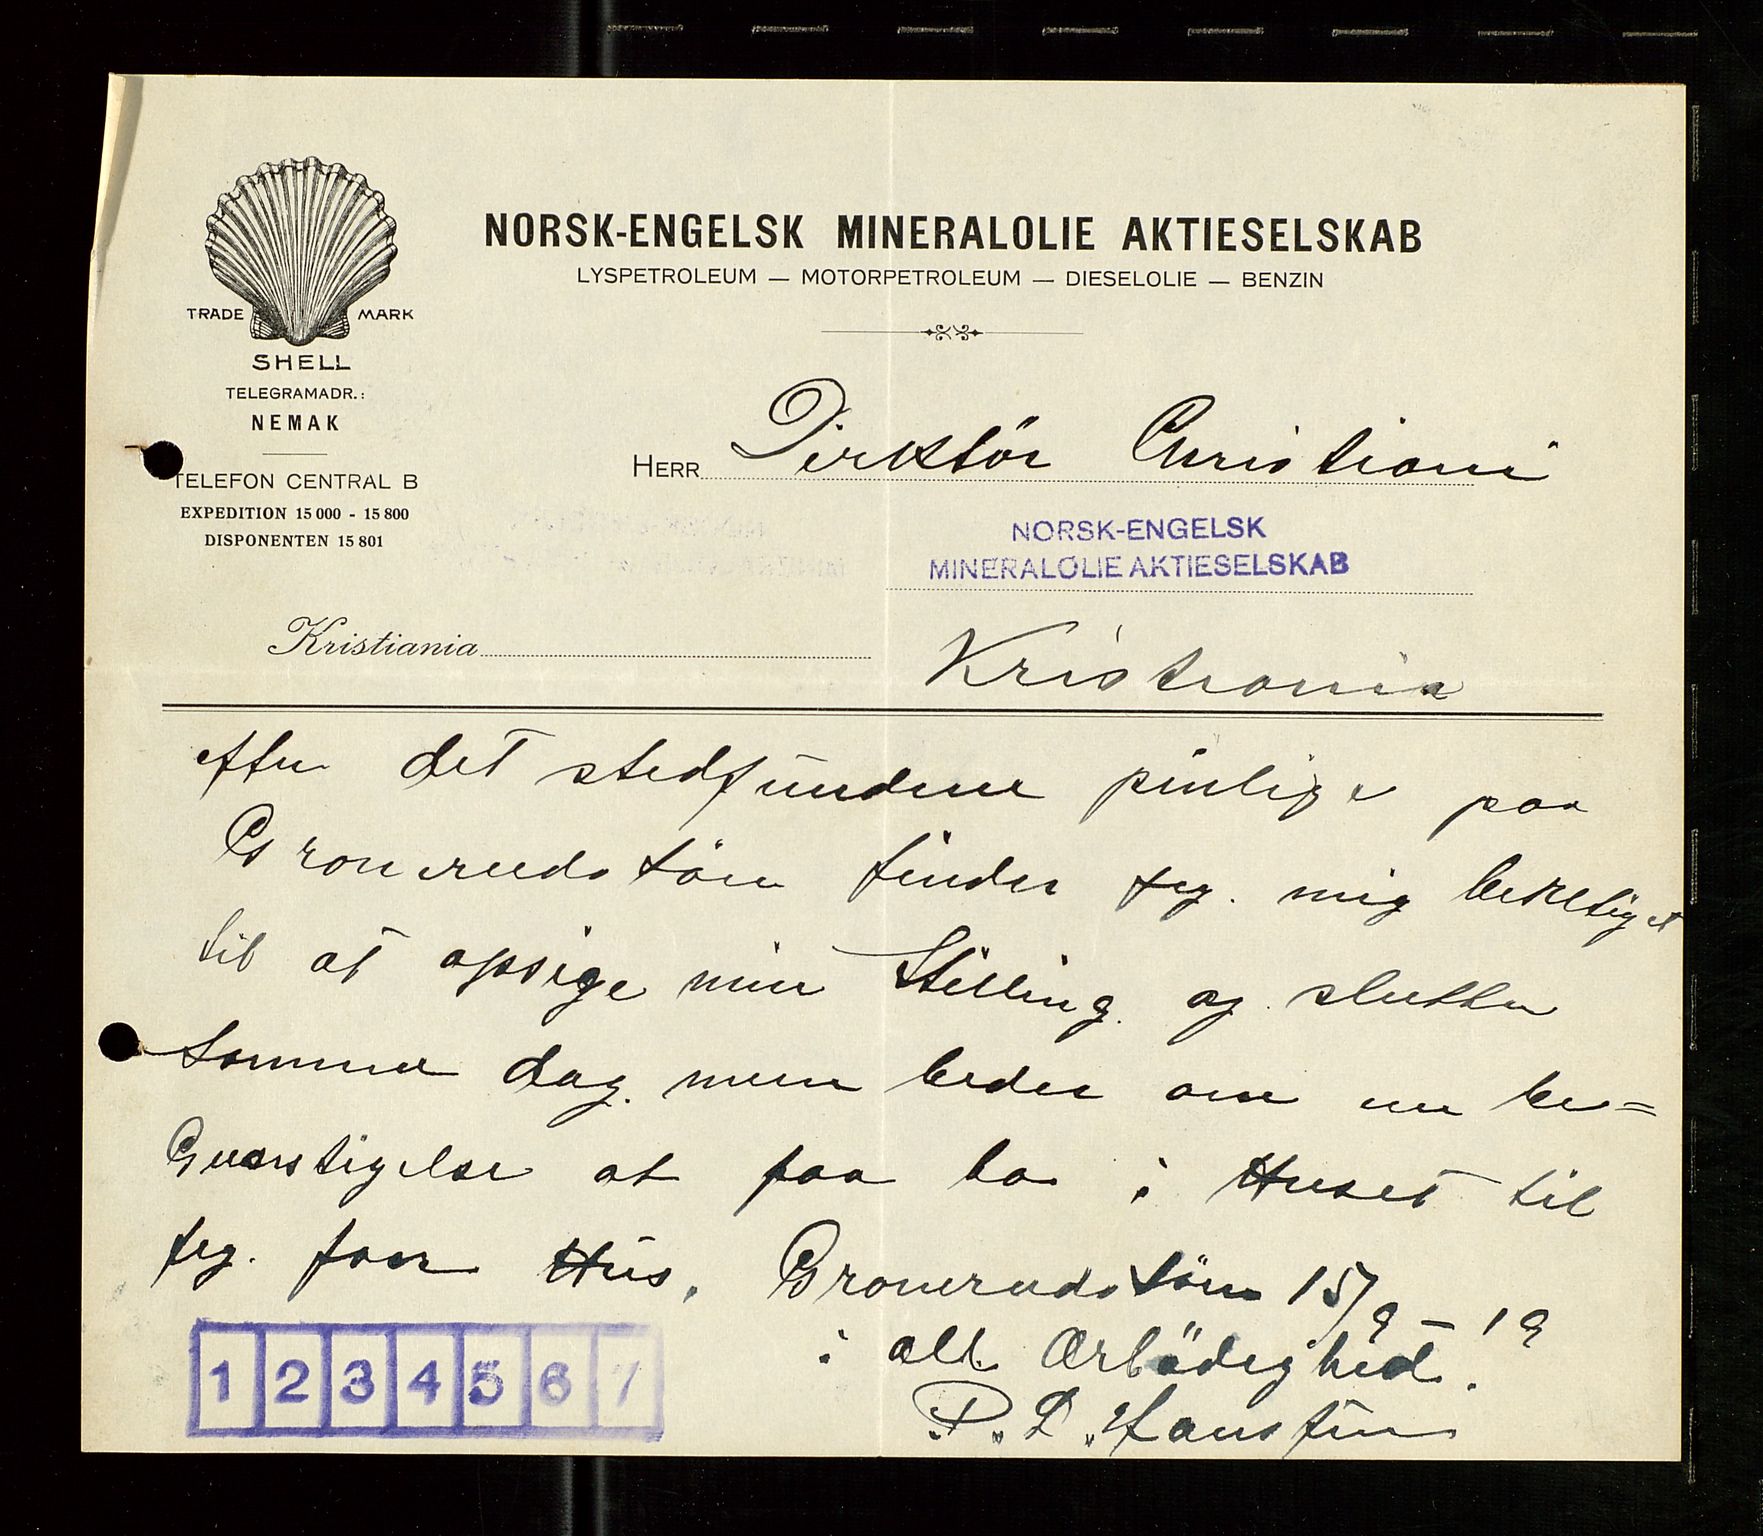 NORSK-ENGELSK MINERALOLIE AKTIESELSKAB
LYSPETROLEUM — MOTORPETROLEUM — DIESELOLIE — BENZIN
TRADE MARK
SHELL
TELEGRAMADR.:
NEMAK
TELEFON CENTRAL B
EXPEDITION 15 000 - 15 800
DISPONENTEN 15 801
HERR Dirktör Christiani
NORSK-ENGELSK
MINERALOLIE AKTIESELSKAB
Kristiania
Kristiania
efter det stedfundene pinlige paa
Gronerudstöen finder jeg. mig berettiget
til at opsige min Stilling. og slutter
samme dag. men beder om en be=
Gunstigelse at faa bo i Huset til
jeg. faar Hus. Gronerudstöen 15/9 – 19
i all Ærbödighed.
P. L. Hansten
1 2 3 4 5 6 7